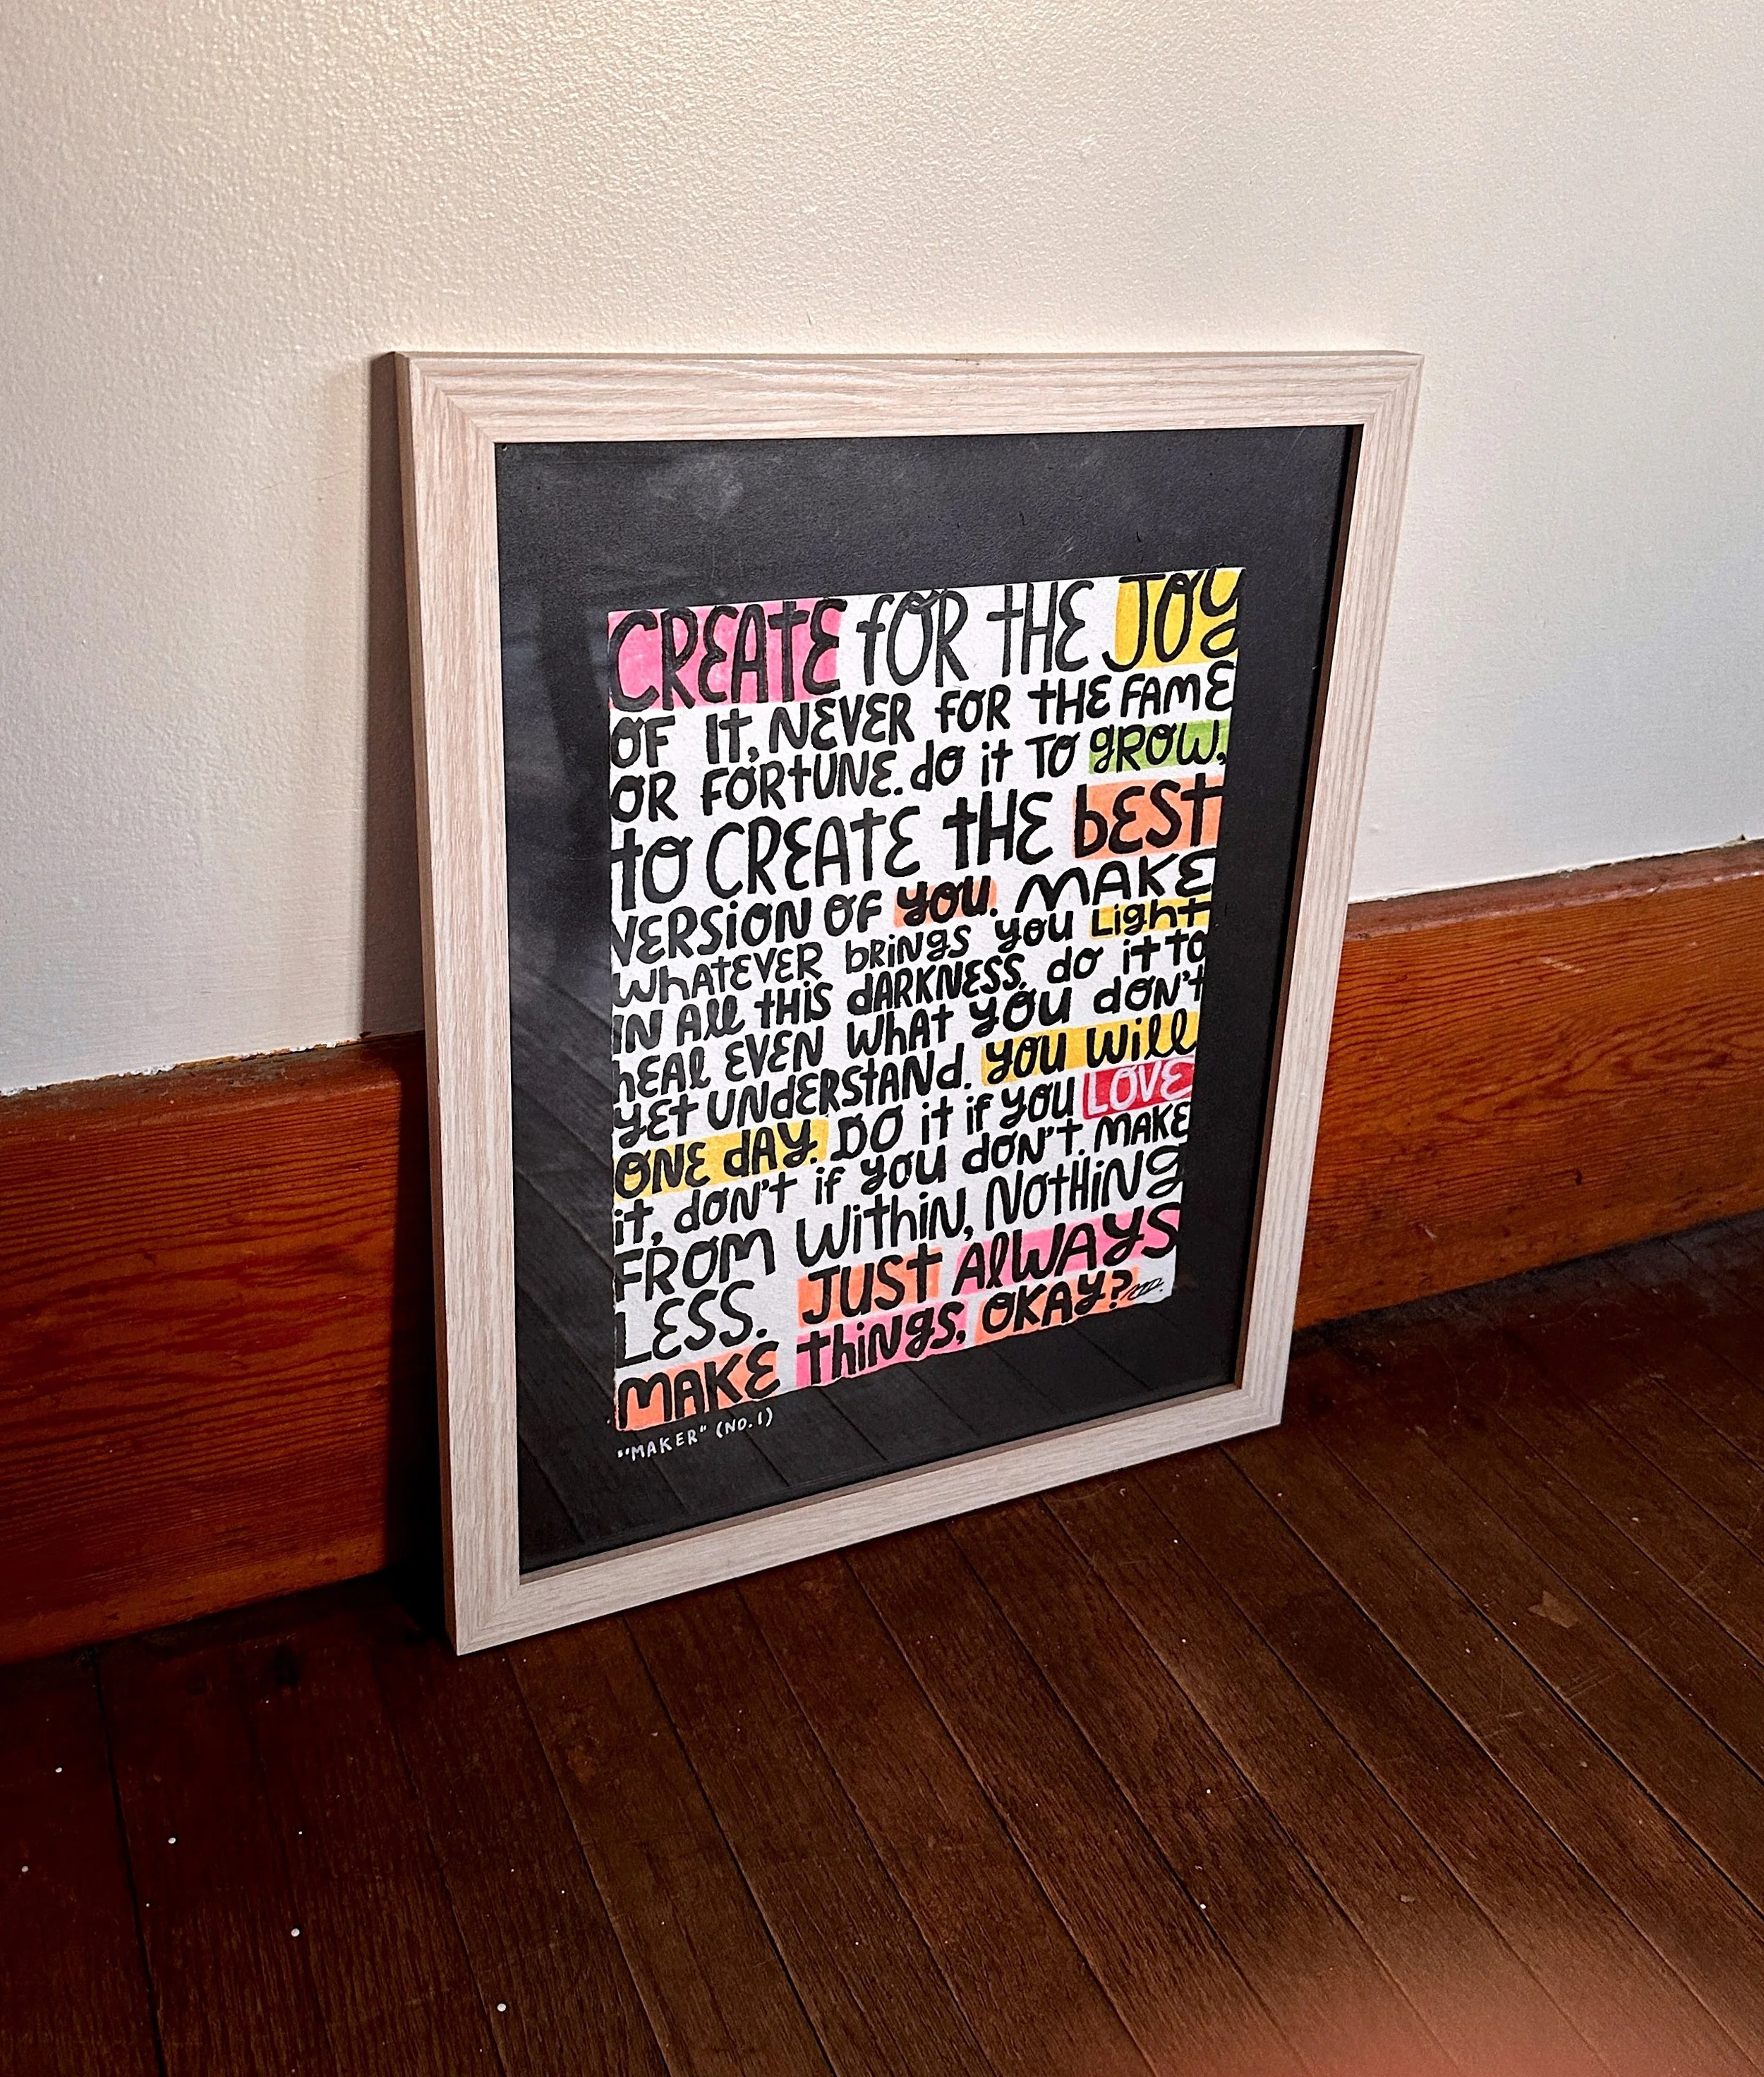 CREATE fOR THE JOY
OF IT, NEVER FOR THE FAME
OR FORTUNE. do it TO gROW,
to CREATE tHE bEST
VERSiON OF yOU. MAKE
WhATEVER bRiNgS yOU Light
iN All tHiS dARKNESS, dO it tO
hEAl EVEN WhAT yOU dON't
yEt UNdERStANd. yOU Will
ONE dAy. DO it if yOU LOVE
it, dON't if yOU dON't. MAKE
FROM WithiN, NOtHiNg
LESS. JUST AlWAyS
MAKE thiNgS, OKAy?
"MAKER" (NO. 1)